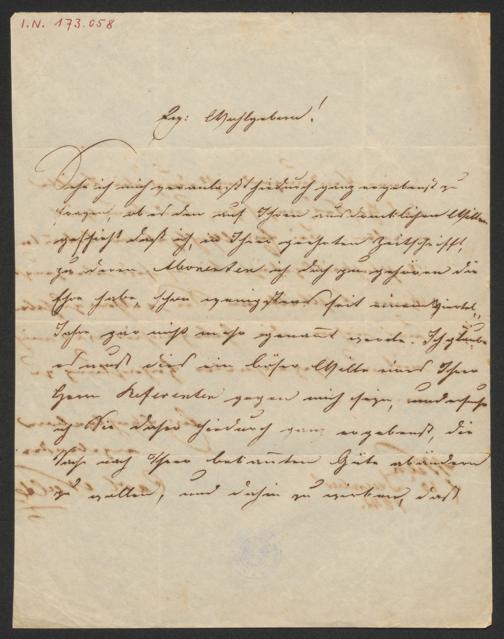 I.N. 173.058
Ew: Wohlgeborn!
Sehe ich mich veranlaßt hiedurch ganz ergebenst zu
fragen, ob es denn auf Ihren ausdrücklichen Willen
geschieht daß ich, in Ihrer geehrten Zeitschrift,
zu deren Abonenten ich doch zu gehören die
Ehre habe, schon wenigstens seit einem Viertel
Jahre gar nicht mehr genannt werde. Ich glaube
es muß dies ein böser Wille eines Ihrer
Herrn Referenten gegen mich sein, und ersuche
ich Sie daher hiedurch ganz ergebenst, die
Sache nach Ihrer bekannten Güte abändern
zu wollen, und dahin zu wirken, daß